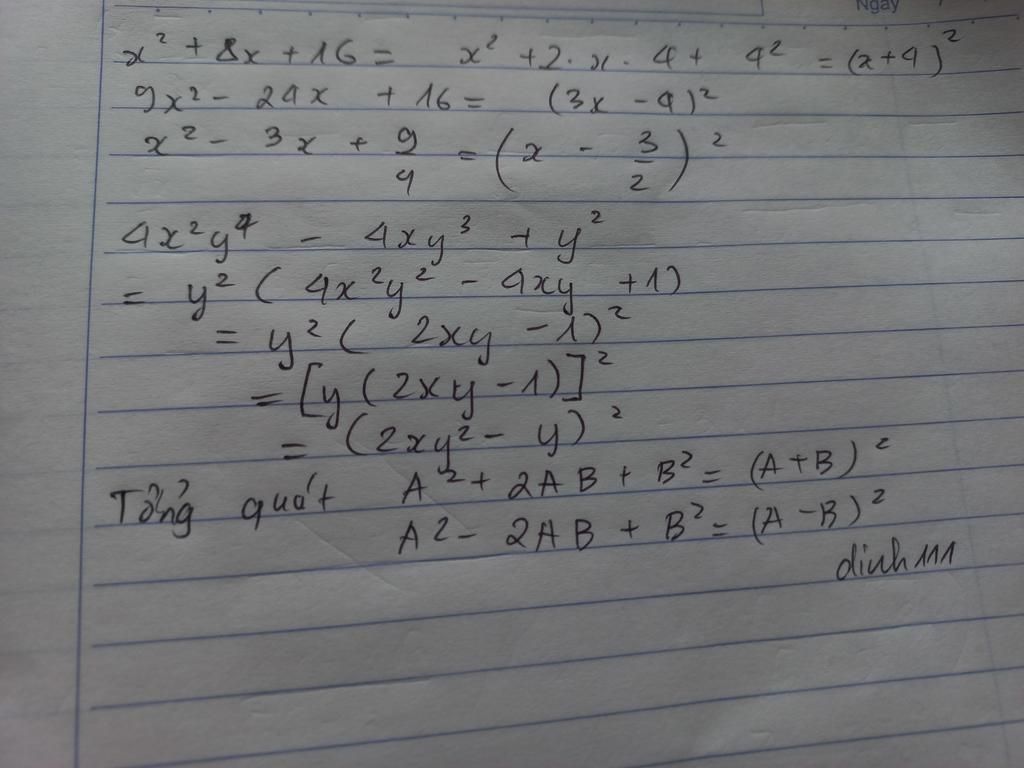 Ngày
x² + 8x + 16 = x² + 2.x.4 + 4² = (x+4)²
9x² - 24x + 16 = (3x - 4)²
x² - 3x + 9/4 = (x - 3/2)²
4x²y⁴ - 4xy³ + y²
= y² ( 4x²y² - 4xy + 1)
= y² ( 2xy - 1)²
= [y (2xy - 1)]²
= (2xy² - y)²
Tổng quát A² + 2AB + B² = (A+B)²
A² - 2AB + B² = (A - B)²
dinh111